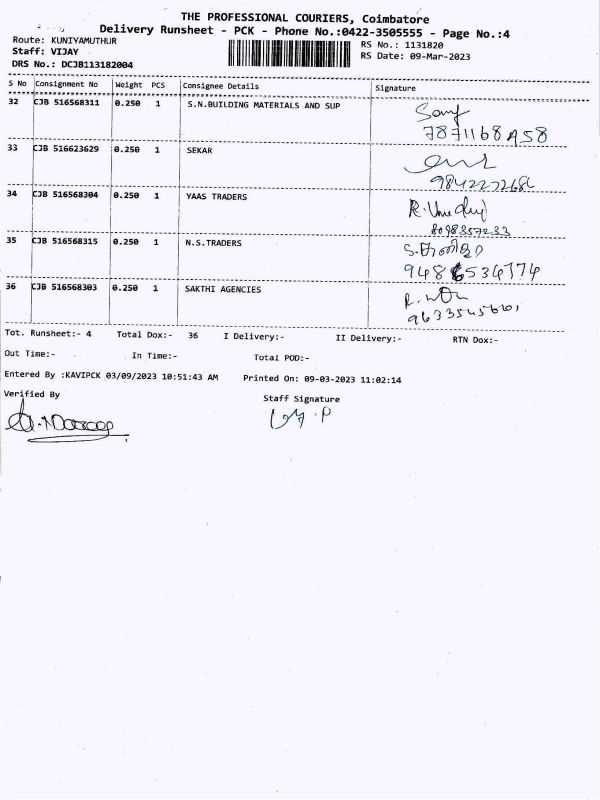 THE PROFESSIONAL COURIERS, Coimbatore
Delivery Runsheet - PCK - Phone No.:0422-3505555 - Page No.:4
Route: KUNIYAMUTHUR
Staff: VIJAY
DRS No.: DCJB113182004
RS No.: 1131820
RS Date: 09-Mar-2023
S No Consignment No Weight PCS Consignee Details Signature
32 CJB 516568311 0.250 1 S.N.BUILDING MATERIALS AND SUP
33 CJB 516623629 0.250 1 SEKAR
34 CJB 516568304 0.250 1 YAAS TRADERS
8098357233
35 CJB 516568315 0.250 1 N.S.TRADERS
36 CJB 516568303 0.250 1 SAKTHI AGENCIES
Tot. Runsheet:- 4 Total Dox:- 36 I Delivery:- II Delivery:- RTN Dox:-
Out Time:- In Time:- Total POD:-
Entered By :KAVIPCK 03/09/2023 10:51:43 AM Printed On: 09-03-2023 11:02:14
Verified By
Staff Signature